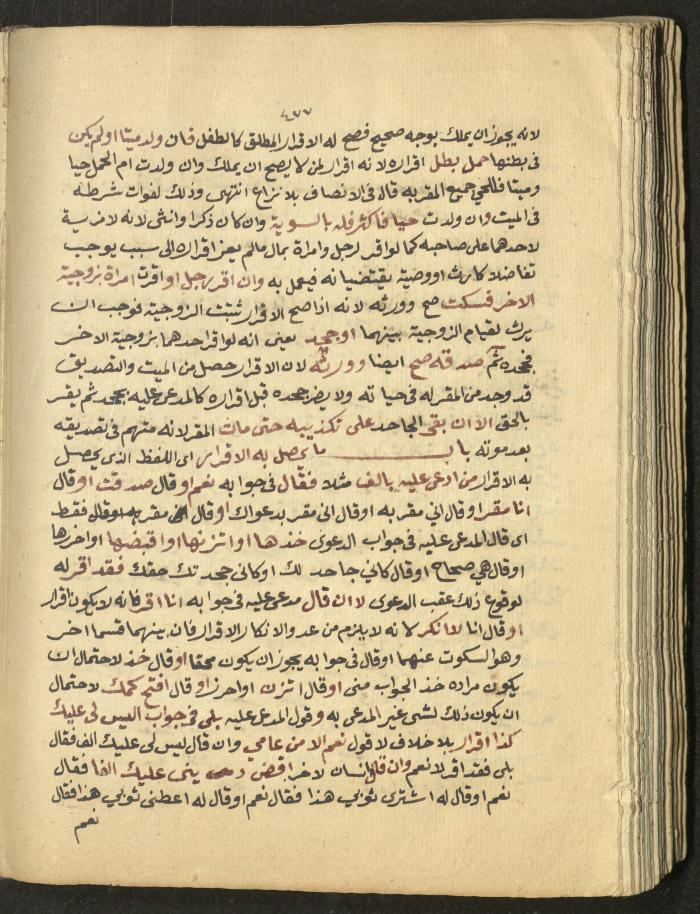 ٤٧٧
لانه يجوز ان يملك بوجه صحيح فصح له الاقرار المطلق كالطفل فان ولد ميتا او لم يكن
فى بطنها حمل بطل اقراره لانه اقرار لمن لا يصح ان يملك وان ولدت ام الحمل حيا
وميتا فللحي جميع المقر به قال فى الانصاف بلا نزاع انتهى وذلك لفوات شرطه
فى الميت وان ولدت حيا فاكثر فله بالسوية وان كان ذكرا وانثى لانه لا مزية
لاحدهما على صاحبه كما لو اقر لرجل وامراة بمال مالم يعز اقراره الى سبب يوجب
تفاضلا كارث او وصية يقتضيانه فيعمل به وان اقر رجل او اقرت امراة بزوجية
الاخر فسكت صح وورثه لانه اذا صح الاقرار ثبتت الزوجية فوجب ان
يرث لقيام الزوجية بينهما او جحد يعنى انه لو اقر احدهما بزوجية الاخر
فجحده ثم صدقه صح ايضا وورثه لان الاقرار حصل من الميت والتصديق
قد وجد من المقر له فى حياته ولا يضر جحده قبل اقراره كالمدعى عليه يجحد ثم يقر
بالحق الا ان بقى الجاحد على تكذيبه حتى مات المقر لانه متهم فى تصديقه
بعد موته باب ما يحصل به الاقرار اى اللفظ الذى يحصل
به الاقرار من ادعى عليه بالف مثلا فقال فى جوابه نعم او قال صدقت او قال
انا مقر او قال اني مقر به او قال انى مقر بدعواك او قال مقر به او قال فقط
اى قال المدعى عليه فى جواب الدعوى خذها او اتزنها او اقبضها او احرزها
او قال هي صحاح او قال كاني جاحد لك او كانى جحدتك حقك فقد اقر له
لوقوع ذلك عقب الدعوى لا ان قال مدعى عليه فى جوابه انا اقر فانه لا يكون اقرار
او قال انا لا انكر لانه لا يلزم من عدم الانكار الاقرار فان بينهما قسما اخر
وهو السكوت عنهما او قال فى جوابه يجوز ان يكون محقا او قال خذ لاحتمال ان
يكون مراده خذ الجواب منى او قال اتزن او احرز او قال افتح كمك لاحتمال
ان يكون ذلك لشى غير المدعى به وقول المدعى عليه بلى فى جواب اليس لى عليك
كذا اقرار بلا خلاف لا قول نعم الا من عامي وان قال ليس لى عليك الف فقال
بلى فقد اقر لا نعم وان قال انسان لاخر اقض دينى عليك الفا فقال
نعم او قال له اشترى ثوبي هذا فقال نعم او قال له اعطنى ثوبي هذا فقال
نعم